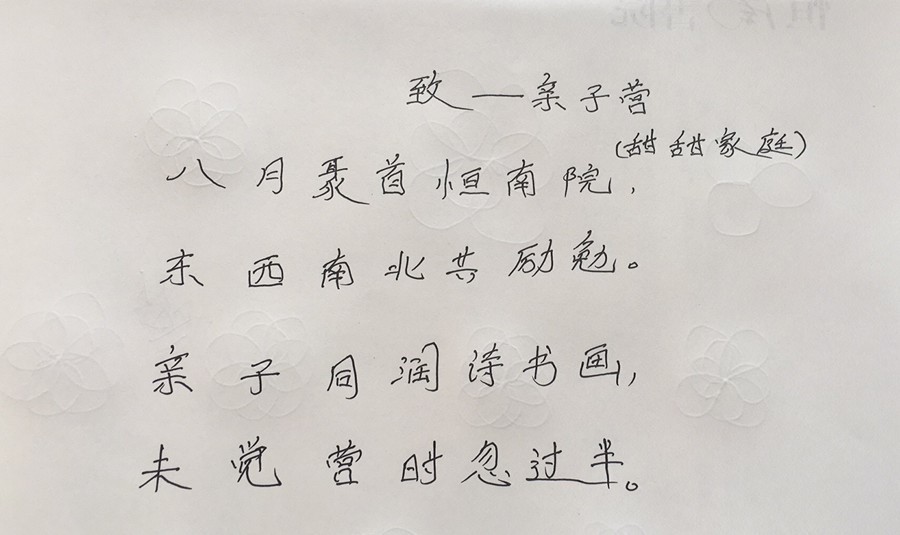 致——亲子营
(甜甜家庭)
八月聚首恒南院，
东西南北共励勉。
亲子同润诗书画，
未觉营时忽过半。